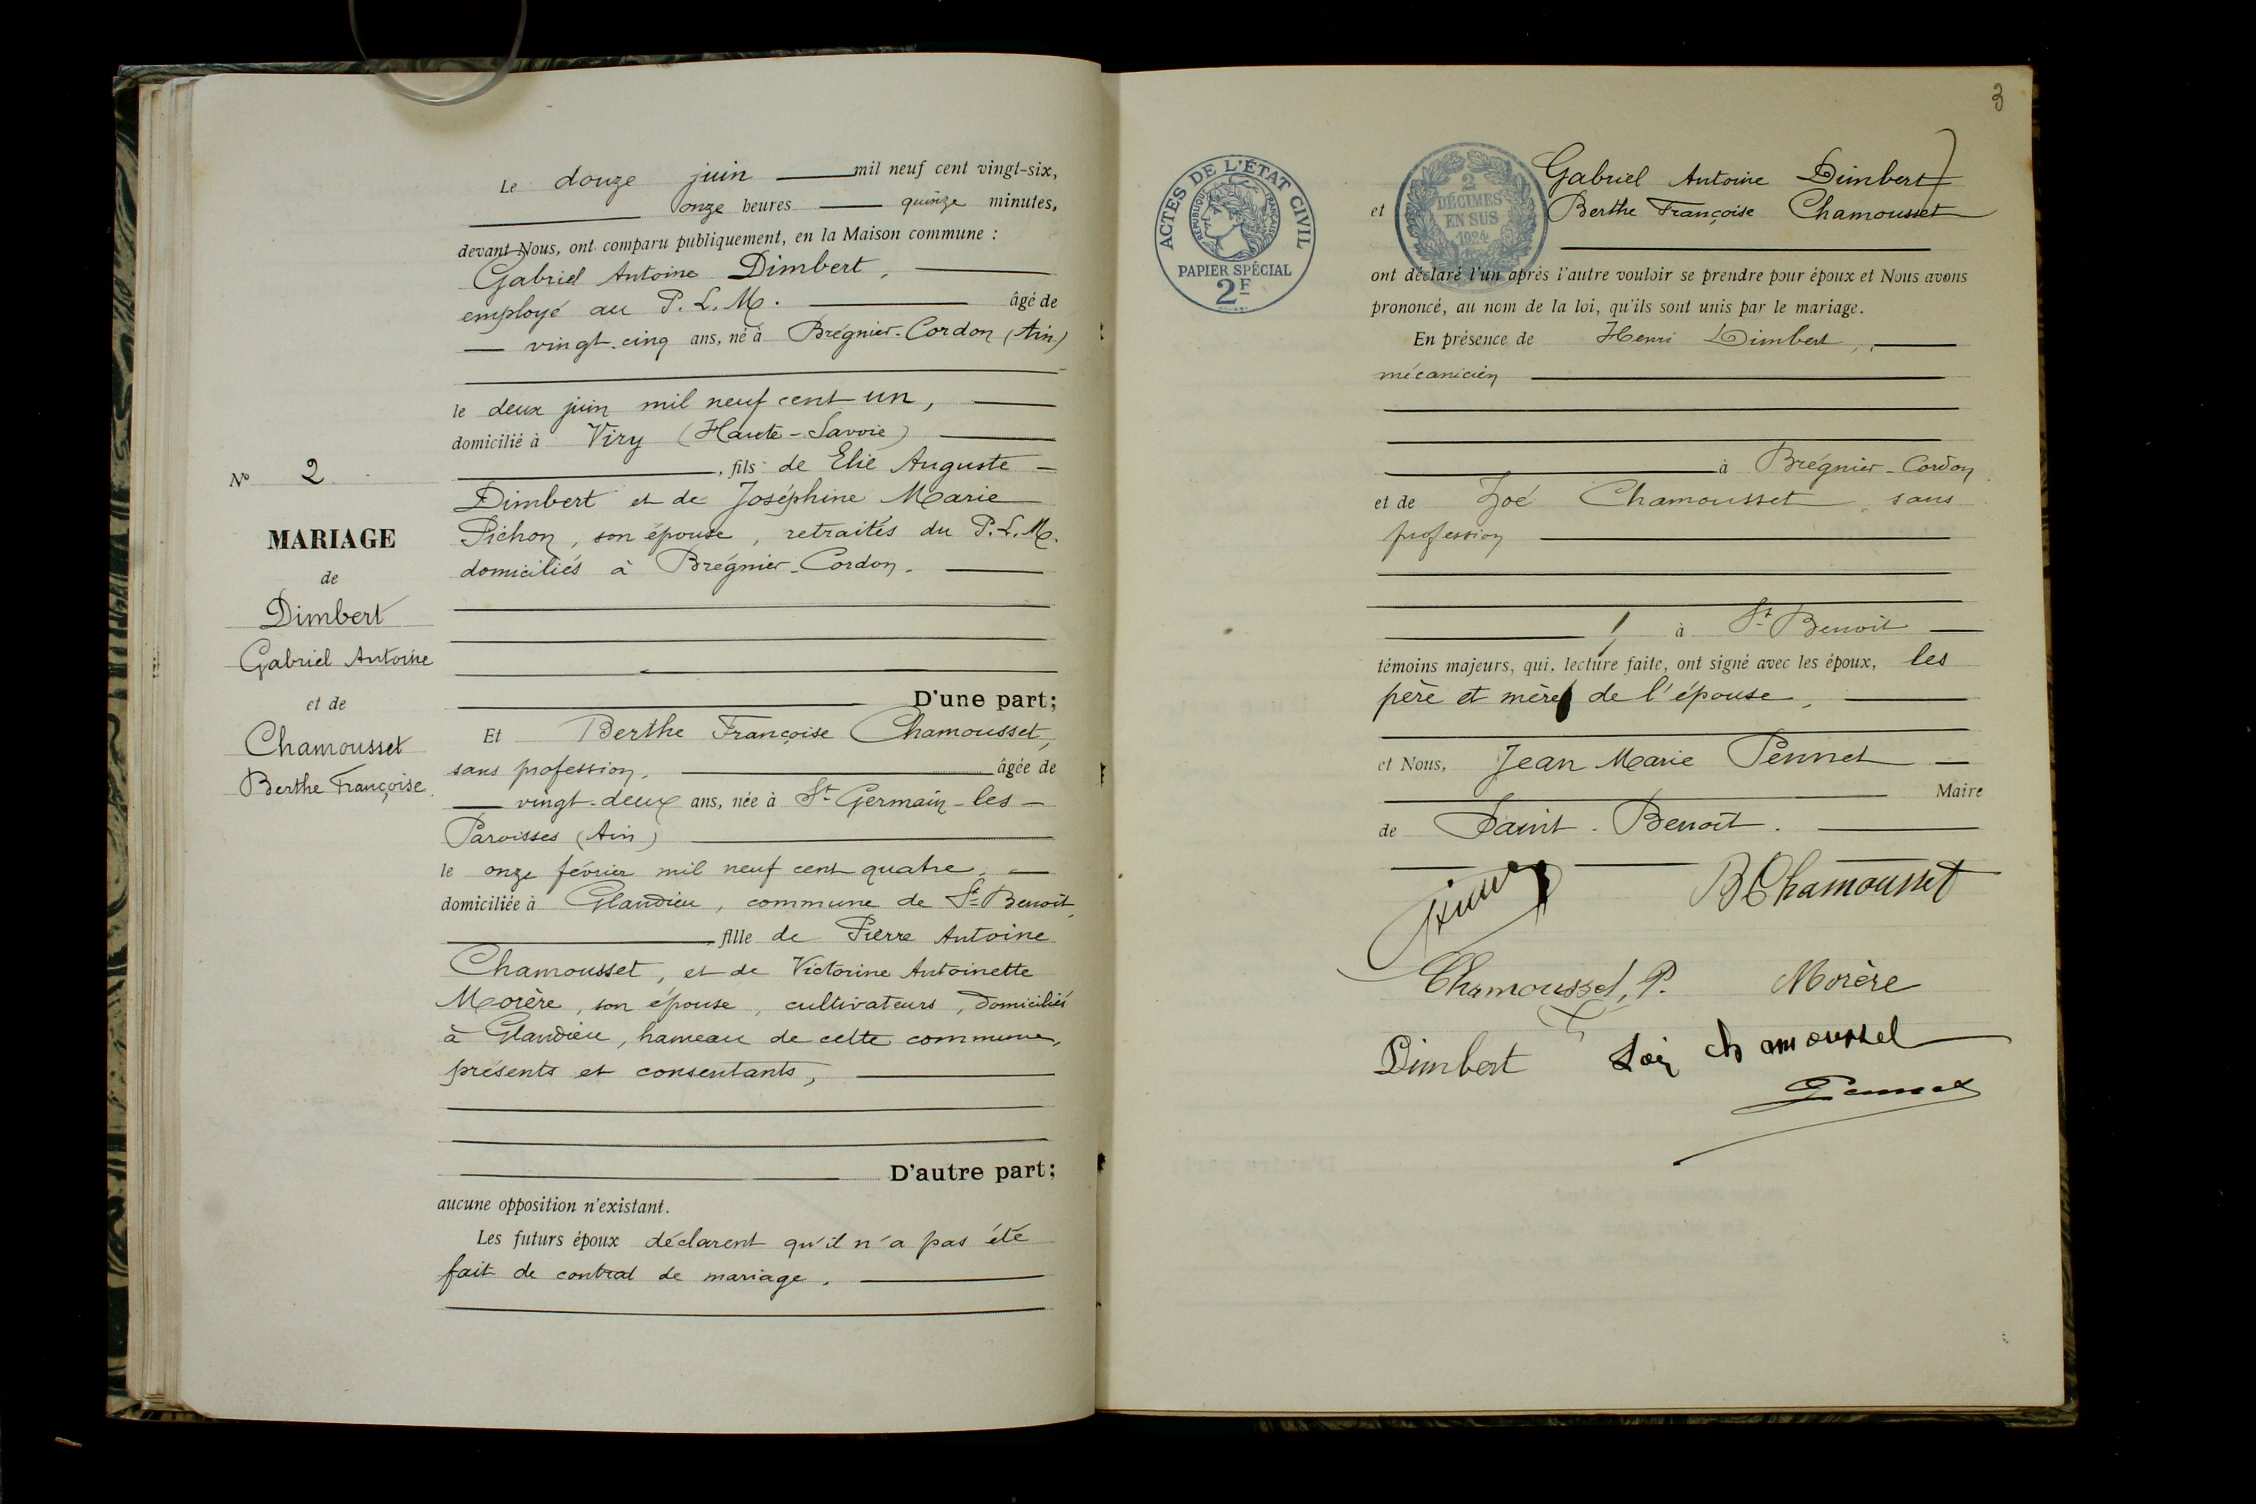 Le douze juin mil neuf cent vingt-six,
onze heures quinze minutes,
devant Nous, ont comparu publiquement, en la Maison commune :
Gabriel Antoine Dimbert,
employé au P. L. M. âgé de
vingt-cinq ans, né à Brégnier-Cordon (Ain)
le deux juin mil neuf cent un,
domicilié à Viry (Haute-Savoie)
, fils de Elie Auguste
Dimbert et de Joséphine Marie
Pichon, son épouse, retraités du P.L.M.
domiciliés à Brégnier-Cordon.
D'une part;
Et Berthe Françoise Chamousset,
sans profession, âgée de
vingt-deux ans, née à St Germain-les-
Paroisses (Ain)
le onze février mil neuf cent quatre,
domiciliée à Glandieu, commune de St Benoît,
, fille de Pierre Antoine
Chamousset, et de Victorine Antoinette
Morère, son épouse, cultivateurs, domiciliés
à Glandieu, hameau de cette commune,
présents et consentants,
D'autre part;
aucune opposition n'existant.
Les futurs époux déclarent qu'il n'a pas été
fait de contrat de mariage.
No 2
MARIAGE
de
Dimbert
Gabriel Antoine
et de
Chamousset
Berthe Françoise
3
ACTES DE L'ÉTAT CIVIL
RÉPUBLIQUE FRANÇAISE
PAPIER SPÉCIAL
2F
2
DÉCIMES
EN SUS
1924
Gabriel Antoine Dimbert
et Berthe Françoise Chamousset
ont déclaré l'un après l'autre vouloir se prendre pour époux et Nous avons
prononcé, au nom de la loi, qu'ils sont unis par le mariage.
En présence de Henri Dimbert,
mécanicien
à Brégnier-Cordon
et de Zoé Chamousset, sans
profession
à St Benoît
témoins majeurs, qui, lecture faite, ont signé avec les époux, les
père et mère de l'épouse,
et Nous, Jean Marie Pennet
Maire
de Saint-Benoît.
B Chamousset
Chamousset, P. Morère
Dimbert Zoé chamousset
Pennet